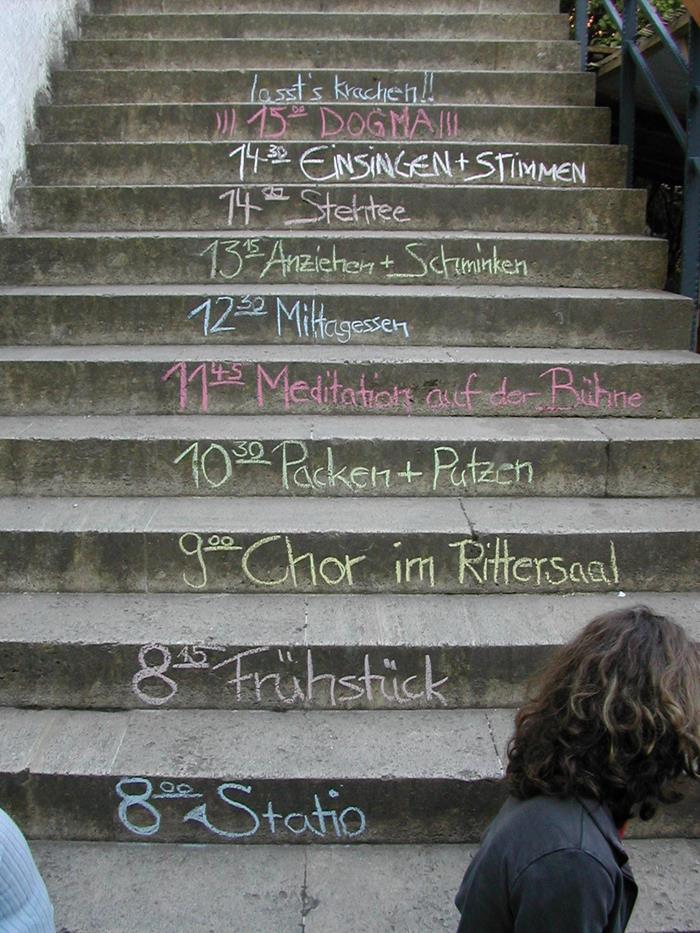 lasst's krachen!!
!!! 15⁰⁰ DOGMA !!!
14³⁰ EINSINGEN + STIMMEN
14⁰⁰ Stehtee
13¹⁵ Anziehen + Schminken
12³⁰ Mittagessen
11⁴⁵ Meditation auf der Bühne
10³⁰ Packen + Putzen
9⁰⁰ Chor im Rittersaal
8¹⁵ Frühstück
8⁰⁰ Statio